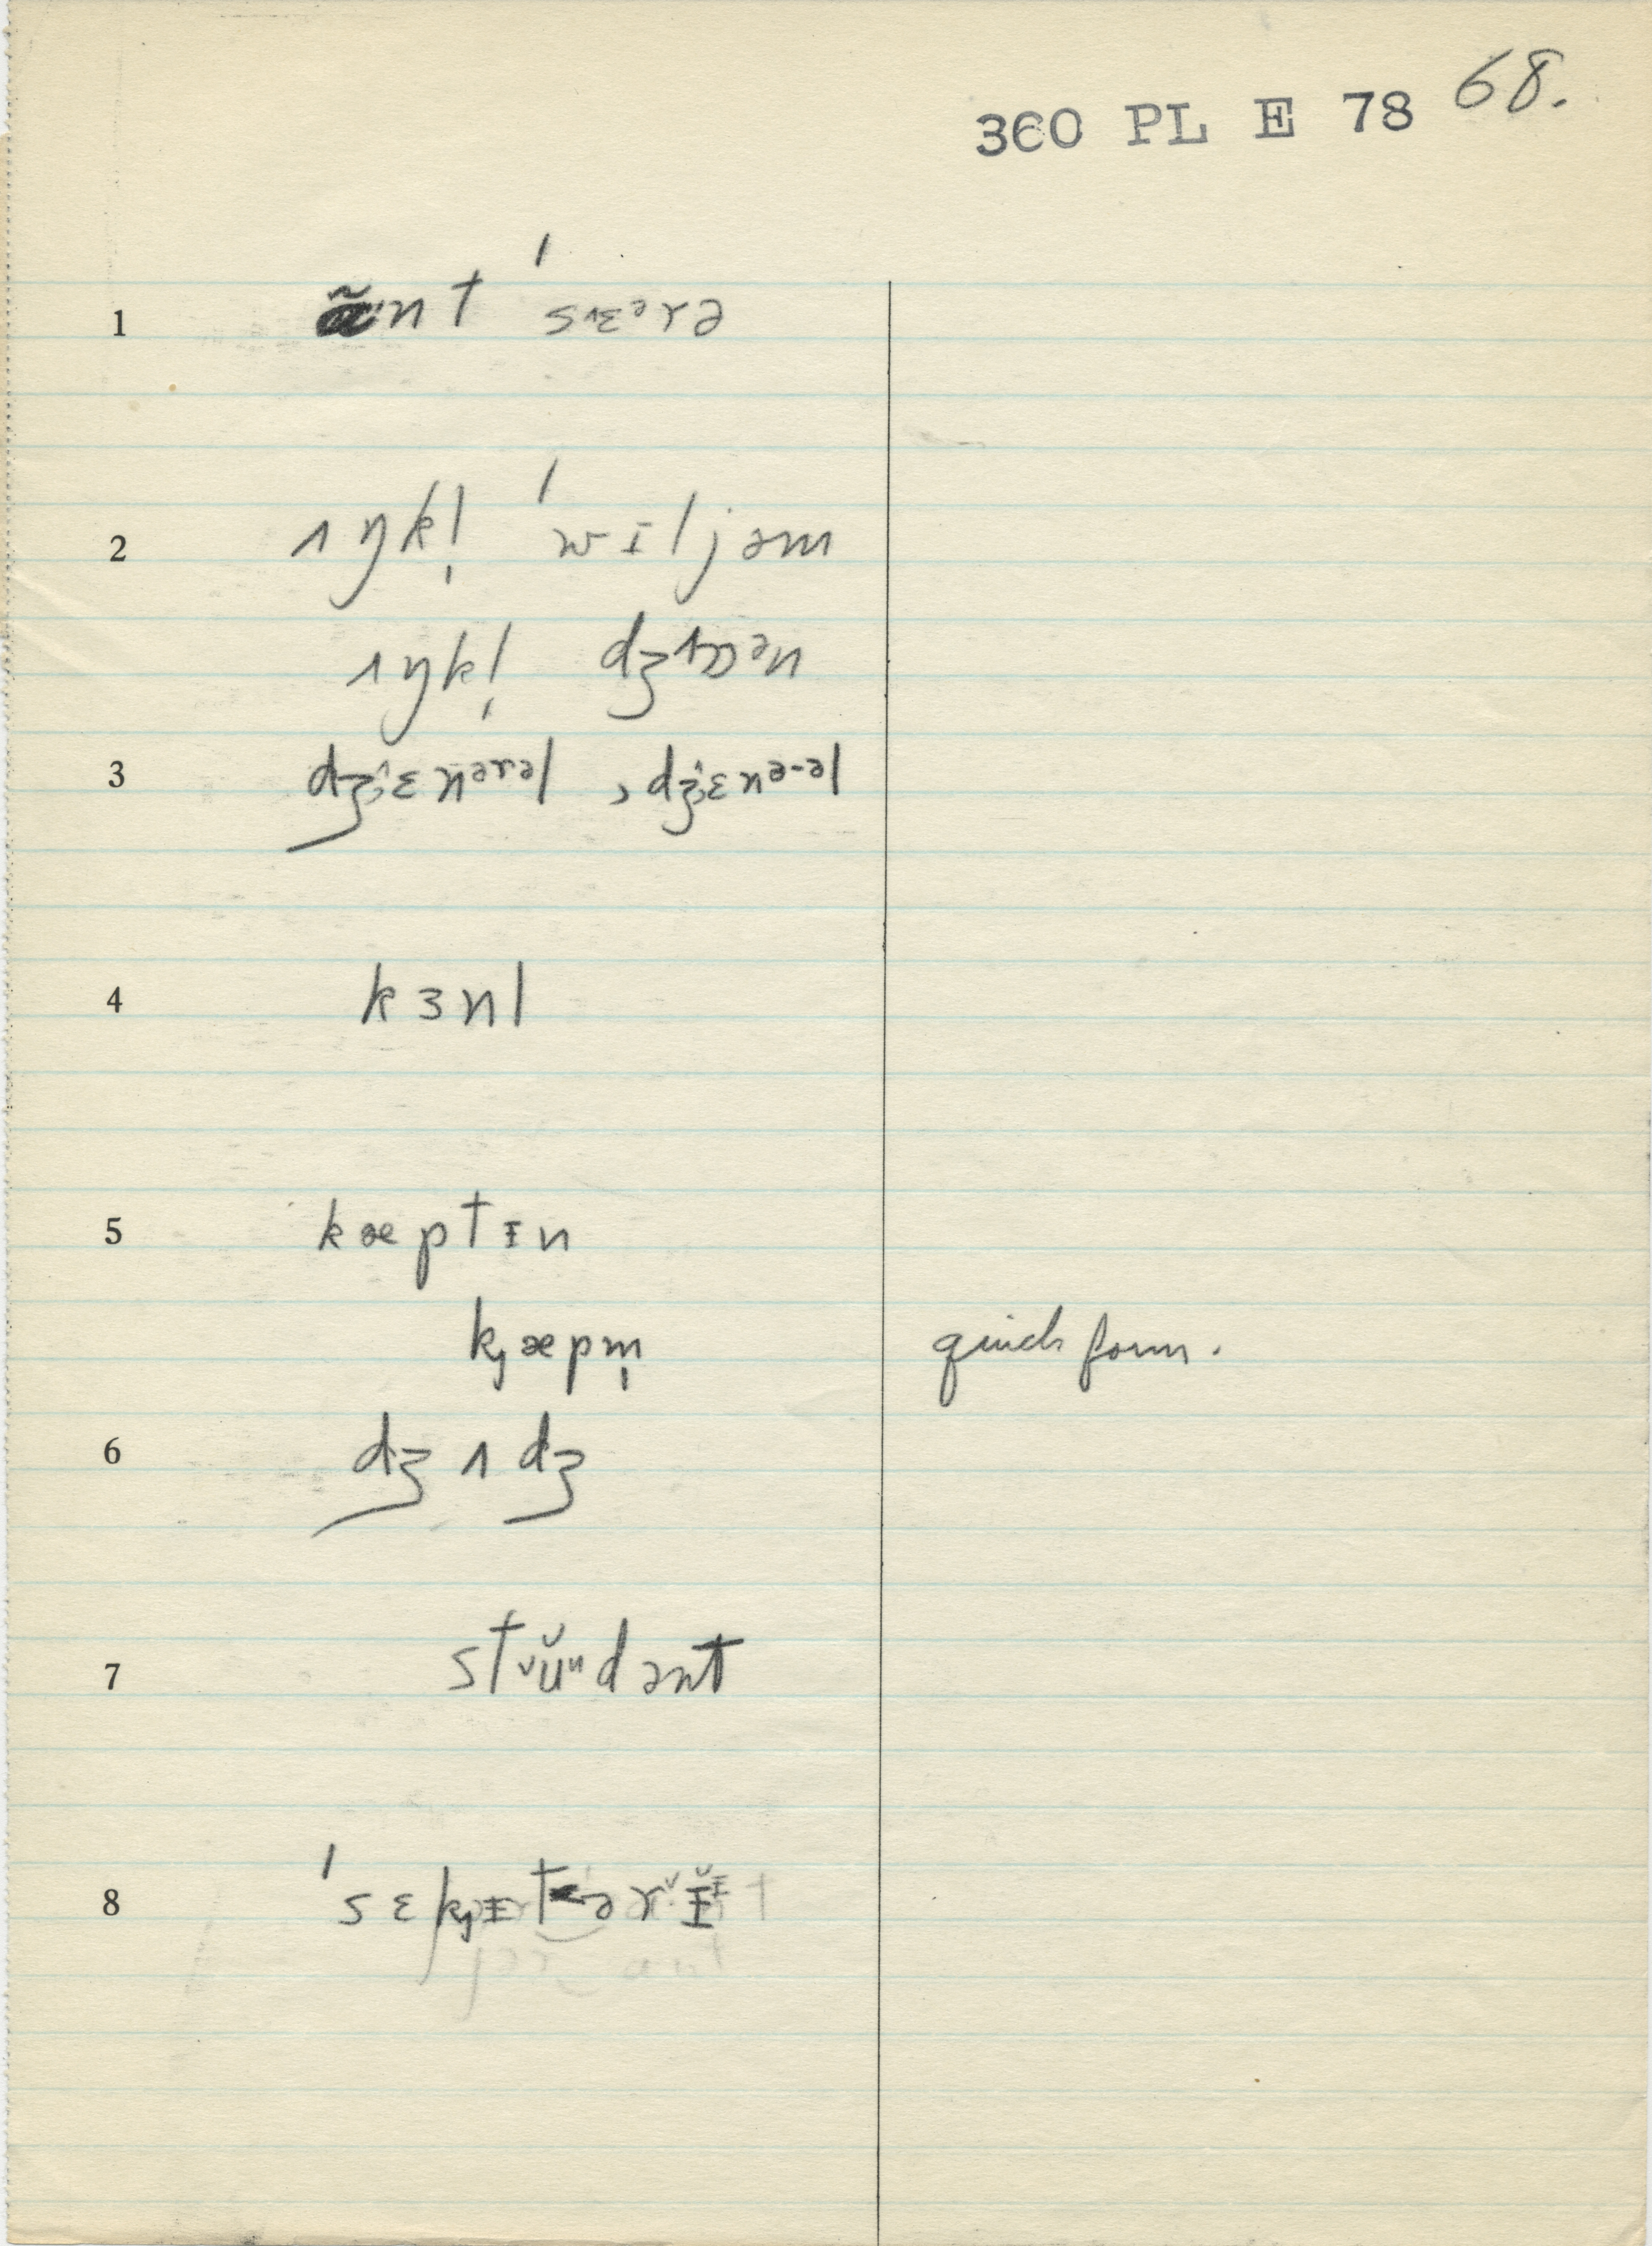 360 PL E 78 68.
1 ãnt ˈsɛᵊrə
2 ʌŋkl̩ ˈwɪljəm
ʌŋkl̩ dʒɒən
3 dʒɛnərəl , dʒɛnə-əl
4 kɜnl
5 kæptɪn
k̡æpm̩ quick form.
6 dʒʌdʒ
7 stᵛŭᵘdənt
8 ˈsɛk̡ɪtərɪ